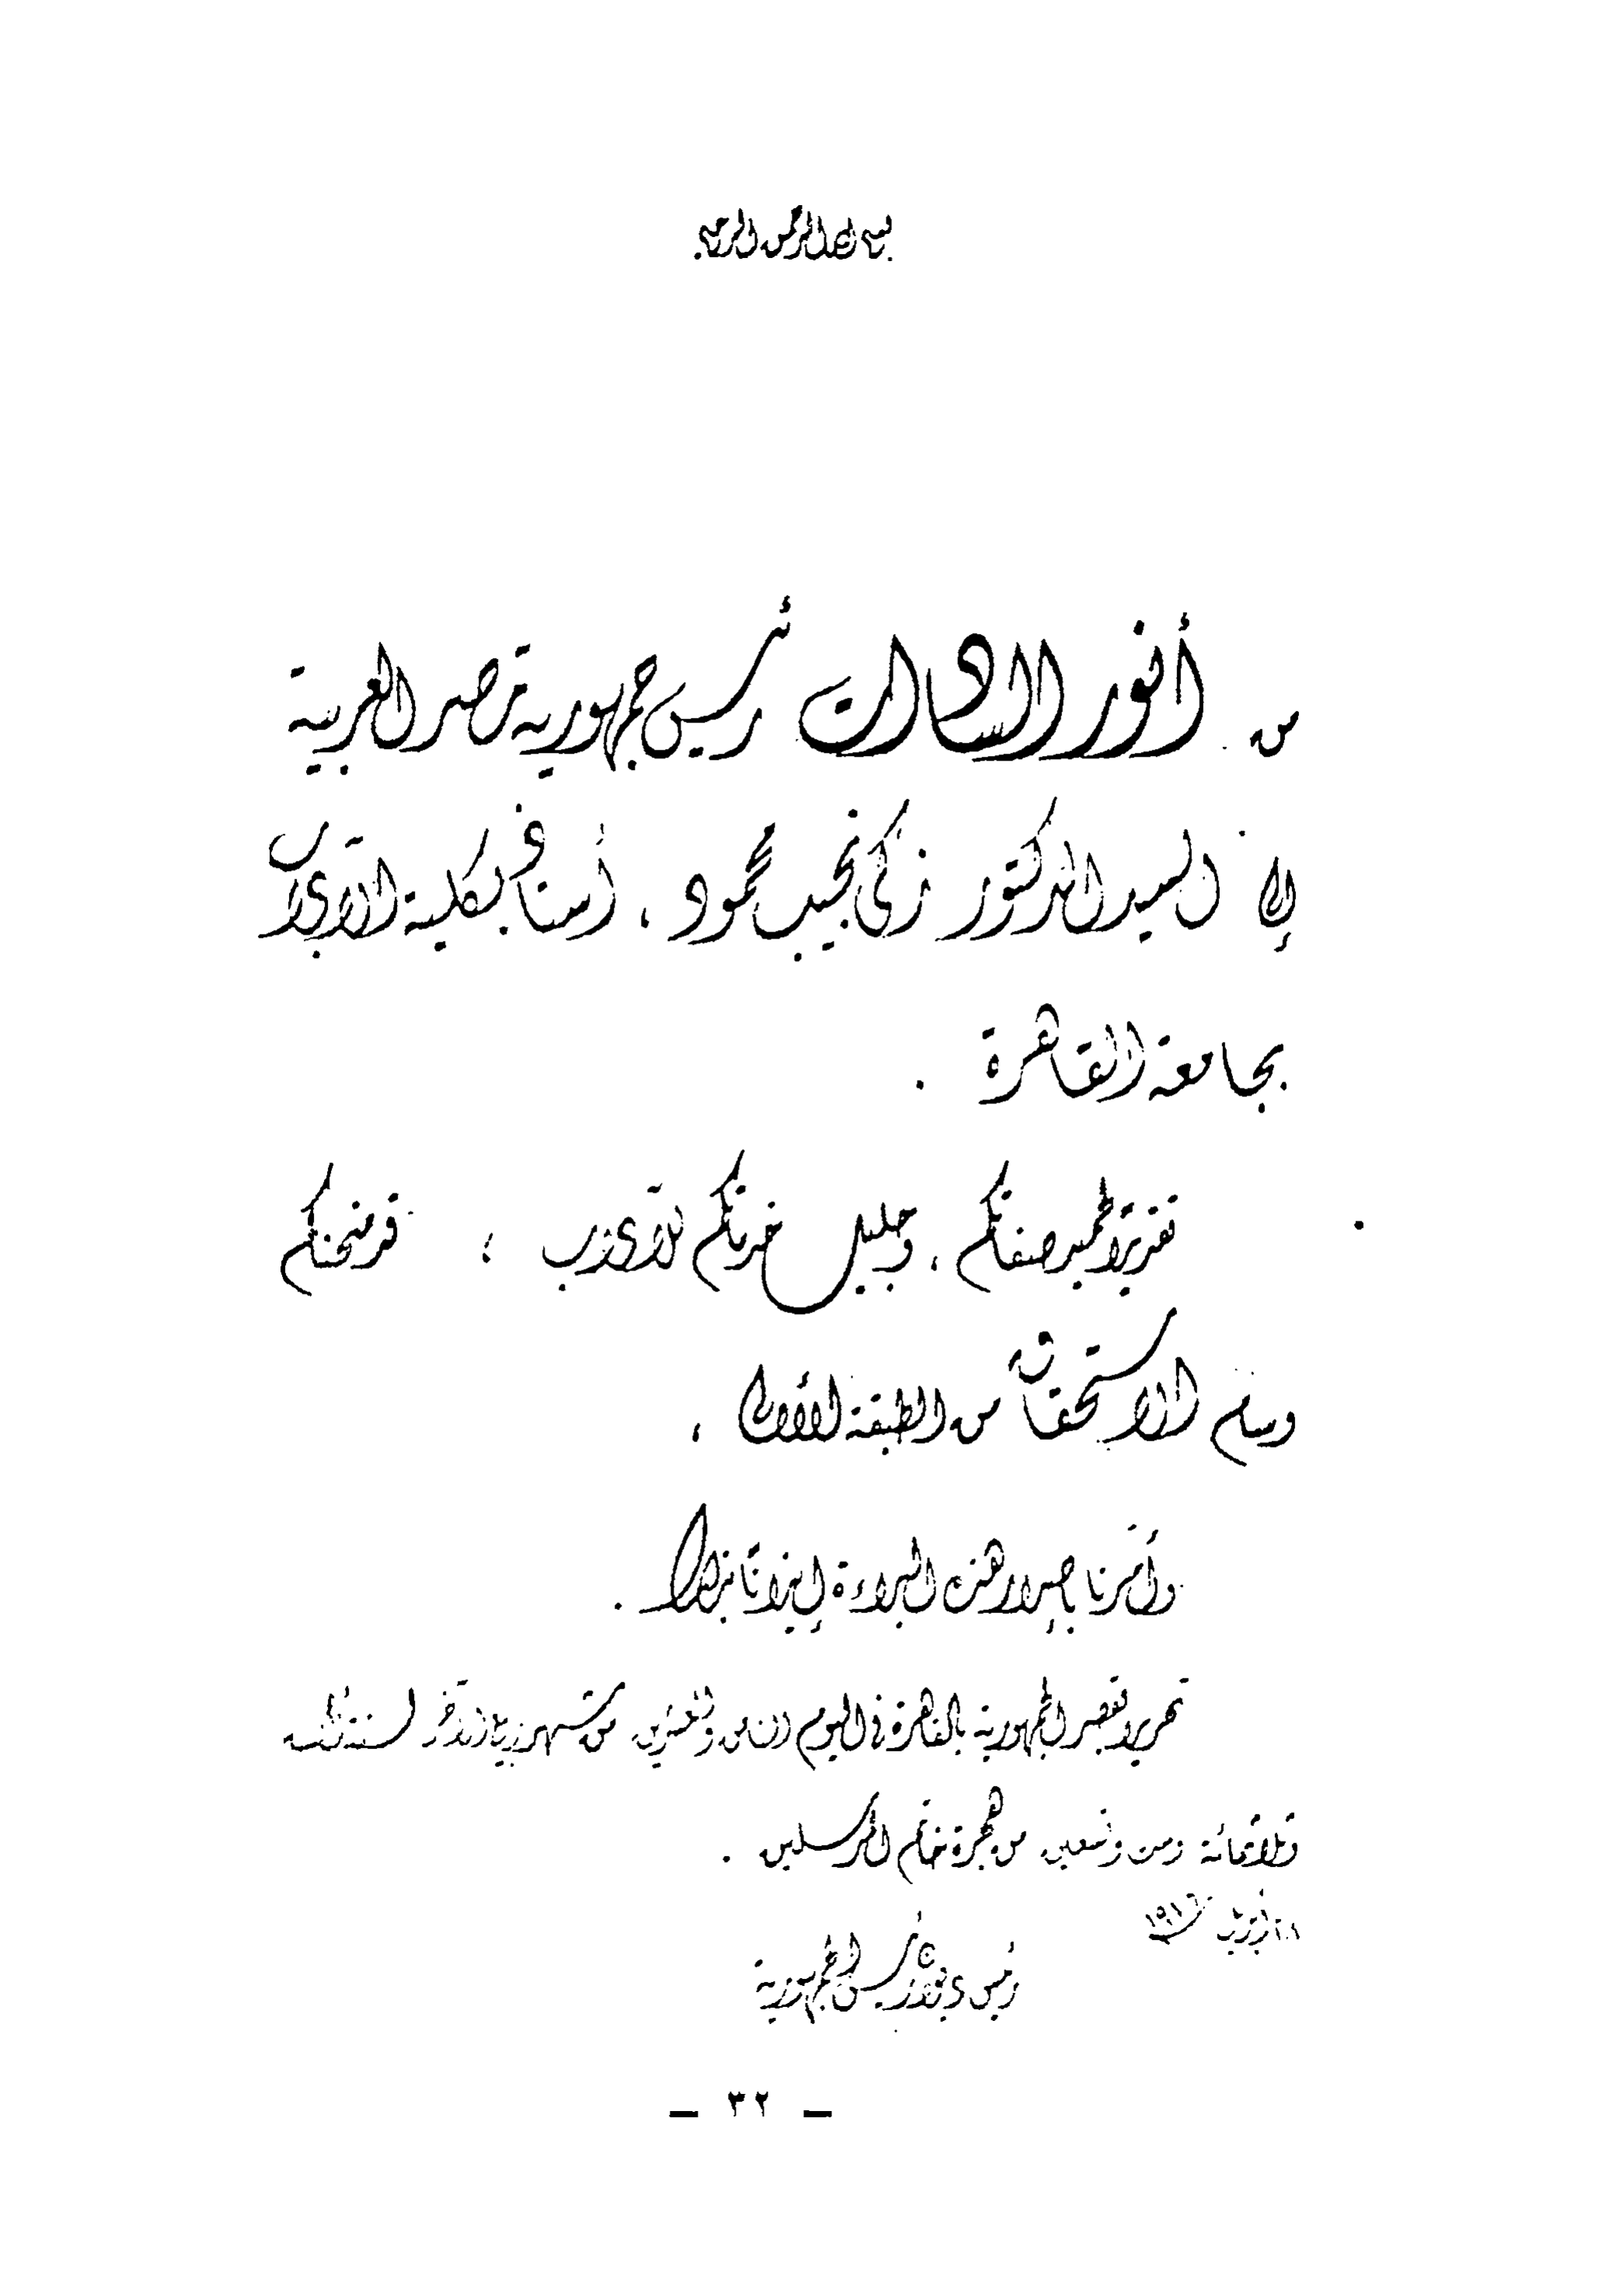 بسم الله الرحمن الرحيم
من أنور السادات رئيس جمهورية مصر العربية
إلى السيد الدكتور زكى نجيب محمود ، أستاذ بكلية الآداب
بجامعة القاهرة .
تقديرا لحميد صفاتكم ، وجليل خدماتكم للآداب ، قد منحناكم
وسام الاستحقاق من الطبقة الأولى ،
وأمرنا بإصدار هذه البراءة إيذانا بذلك .
تحريرا بقصر الجمهورية بالقاهرة فى اليوم الثامن والعشرين من شهر ربيع الآخر لسنة ألف
وثلاثمائة وست وتسعين من هجرة خاتم المرسلين .
٢٨ أبريل
رئيس ديوان رئيس الجمهورية
– ٣٢ –